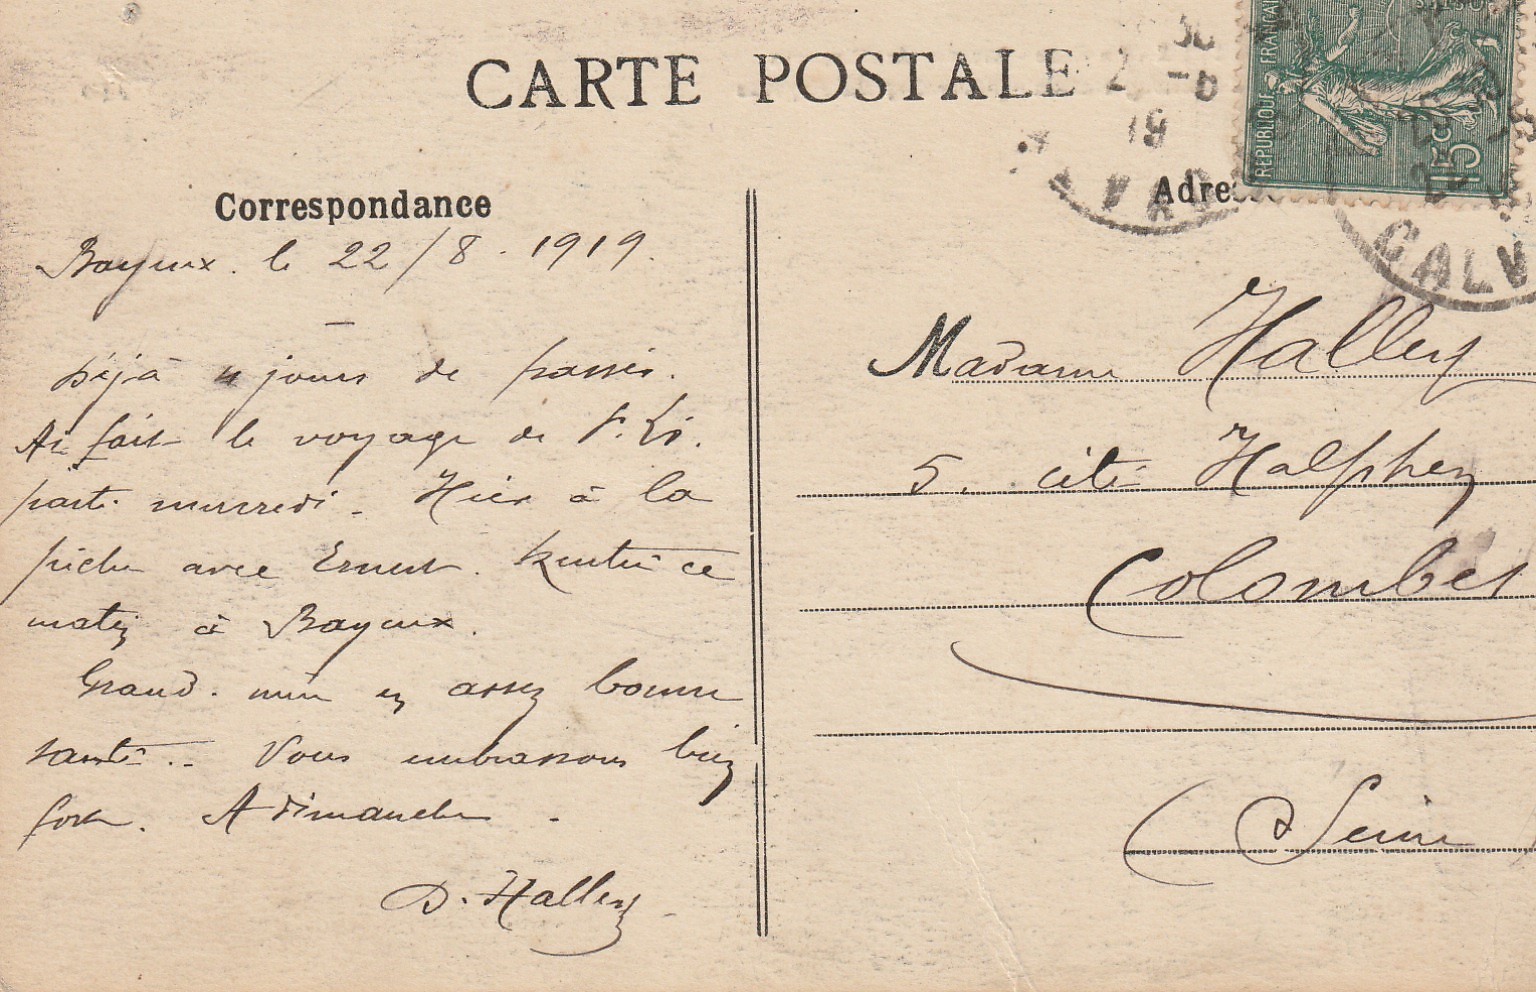 CARTE POSTALE
Correspondance
Bayeux. le 22/8. 1919.
Déjà 4 jours de passés.
Ai fait le voyage de
parti mercredi. Hier à la
pêche avec Ernest. Rentré ce
matin à Bayeux.
Grand. mère en assez bonne
santé.. Vous embrassons bien
fort. A dimanche.
D. Halley
REPUBLIQUE FRANCAI
15c
2 -8
19
CALV
Adres
Madame Halley
5. cité Halphen
Colombes
(Seine)